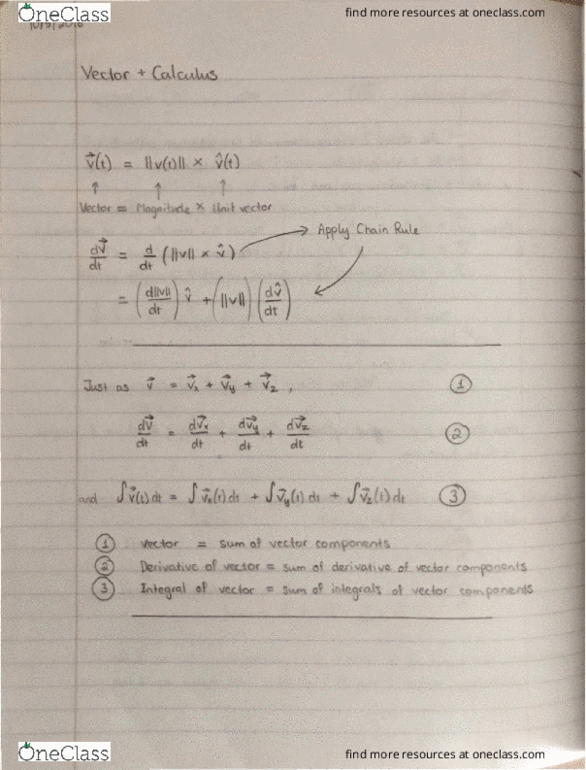 OneClass
find more resources at oneclass.com
Vector + Calculus
v⃗(t) = ||v(t)|| × v̂(t)
↑ ↑ ↑
Vector = Magnitude × Unit vector
dv⃗/dt = d/dt (||v|| × v̂) → Apply Chain Rule
= (d||v||/dt) v̂ + (||v||) (dv̂/dt)
Just as v⃗ = v⃗x + v⃗y + v⃗z , ①
dv⃗/dt = dv⃗x/dt + dv⃗y/dt + dv⃗z/dt ②
and ∫v⃗(t)dt = ∫v⃗x(t)dt + ∫v⃗y(t)dt + ∫v⃗z(t)dt ③
① vector = sum of vector components
② Derivative of vector = sum of derivative of vector components
③ Integral of vector = sum of integrals of vector components
OneClass
find more resources at oneclass.com